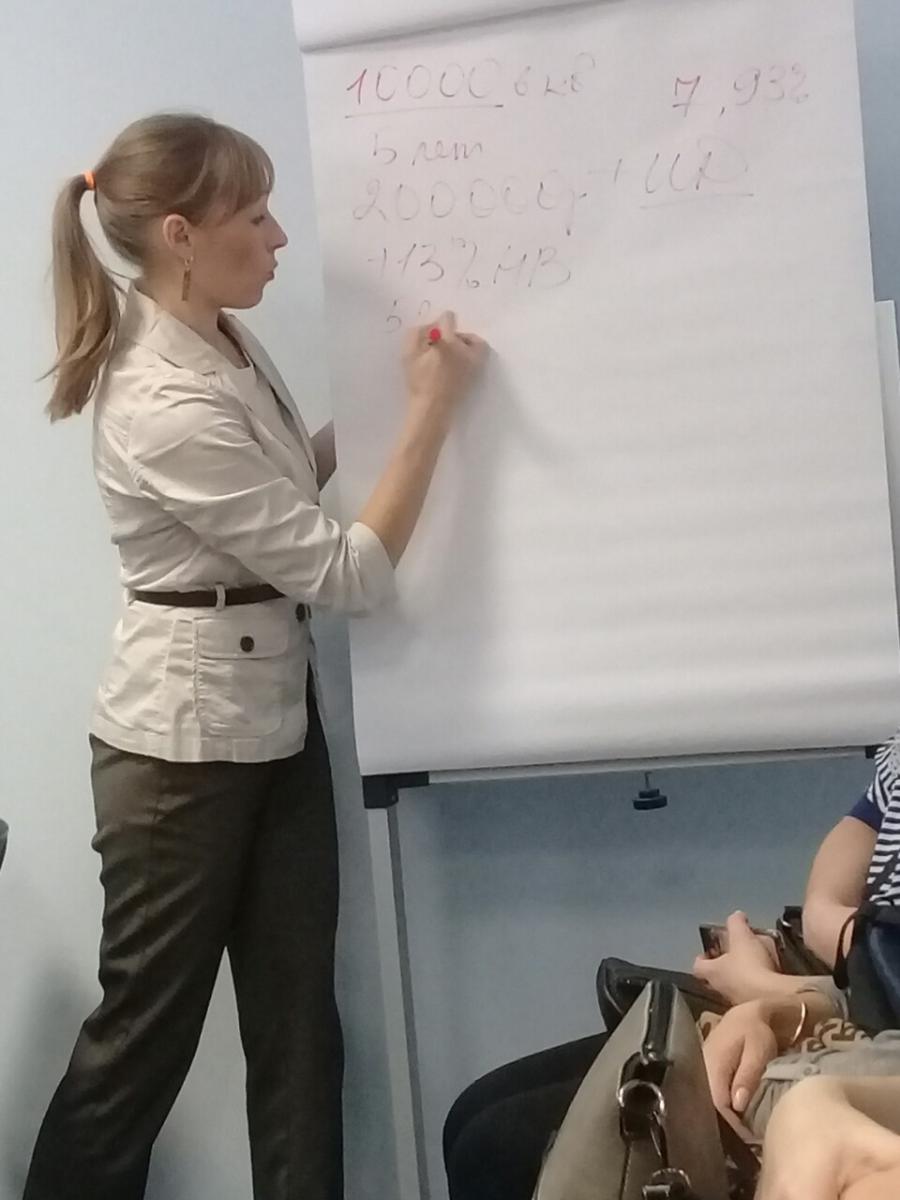 10000 в кв 7,93%
5 лет
200000р + ИД
+13% НВ